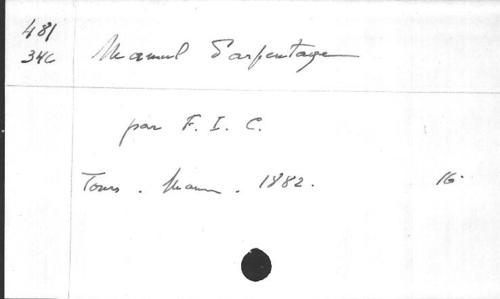 481
346
Manuel d'arpentage
par F. I. C.
Tours. Mame. 1882. 16.